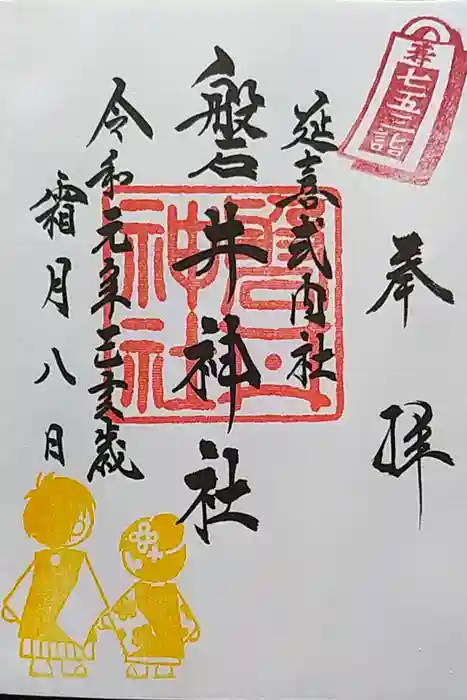 奉拝
延喜式内社
磐井神社
令和元年己亥歳
霜月八日
奉七五三詣
磐井神社